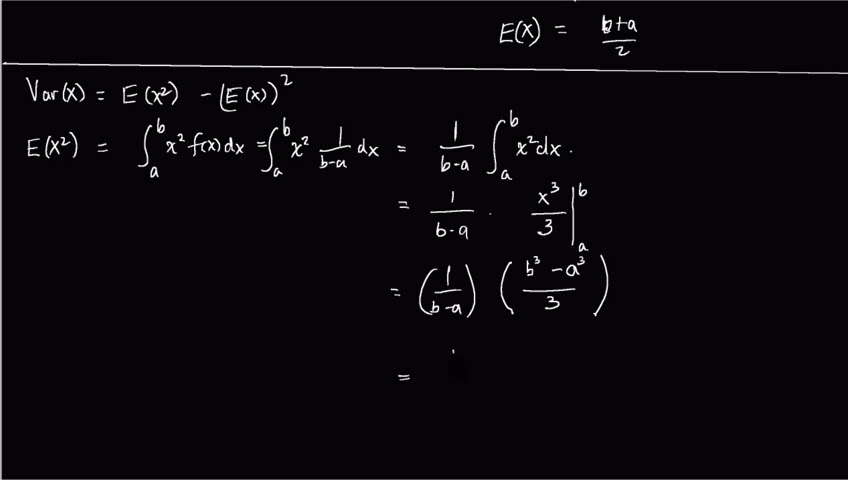 E(X) = b+a/2
Var(X) = E(X²) - (E(X))²
E(X²) = ∫ₐᵇ x² f(x) dx = ∫ₐᵇ x² 1/b-a dx = 1/b-a ∫ₐᵇ x² dx.
= 1/b-a · x³/3 |ₐᵇ
= (1/b-a) (b³ - a³/3)
=